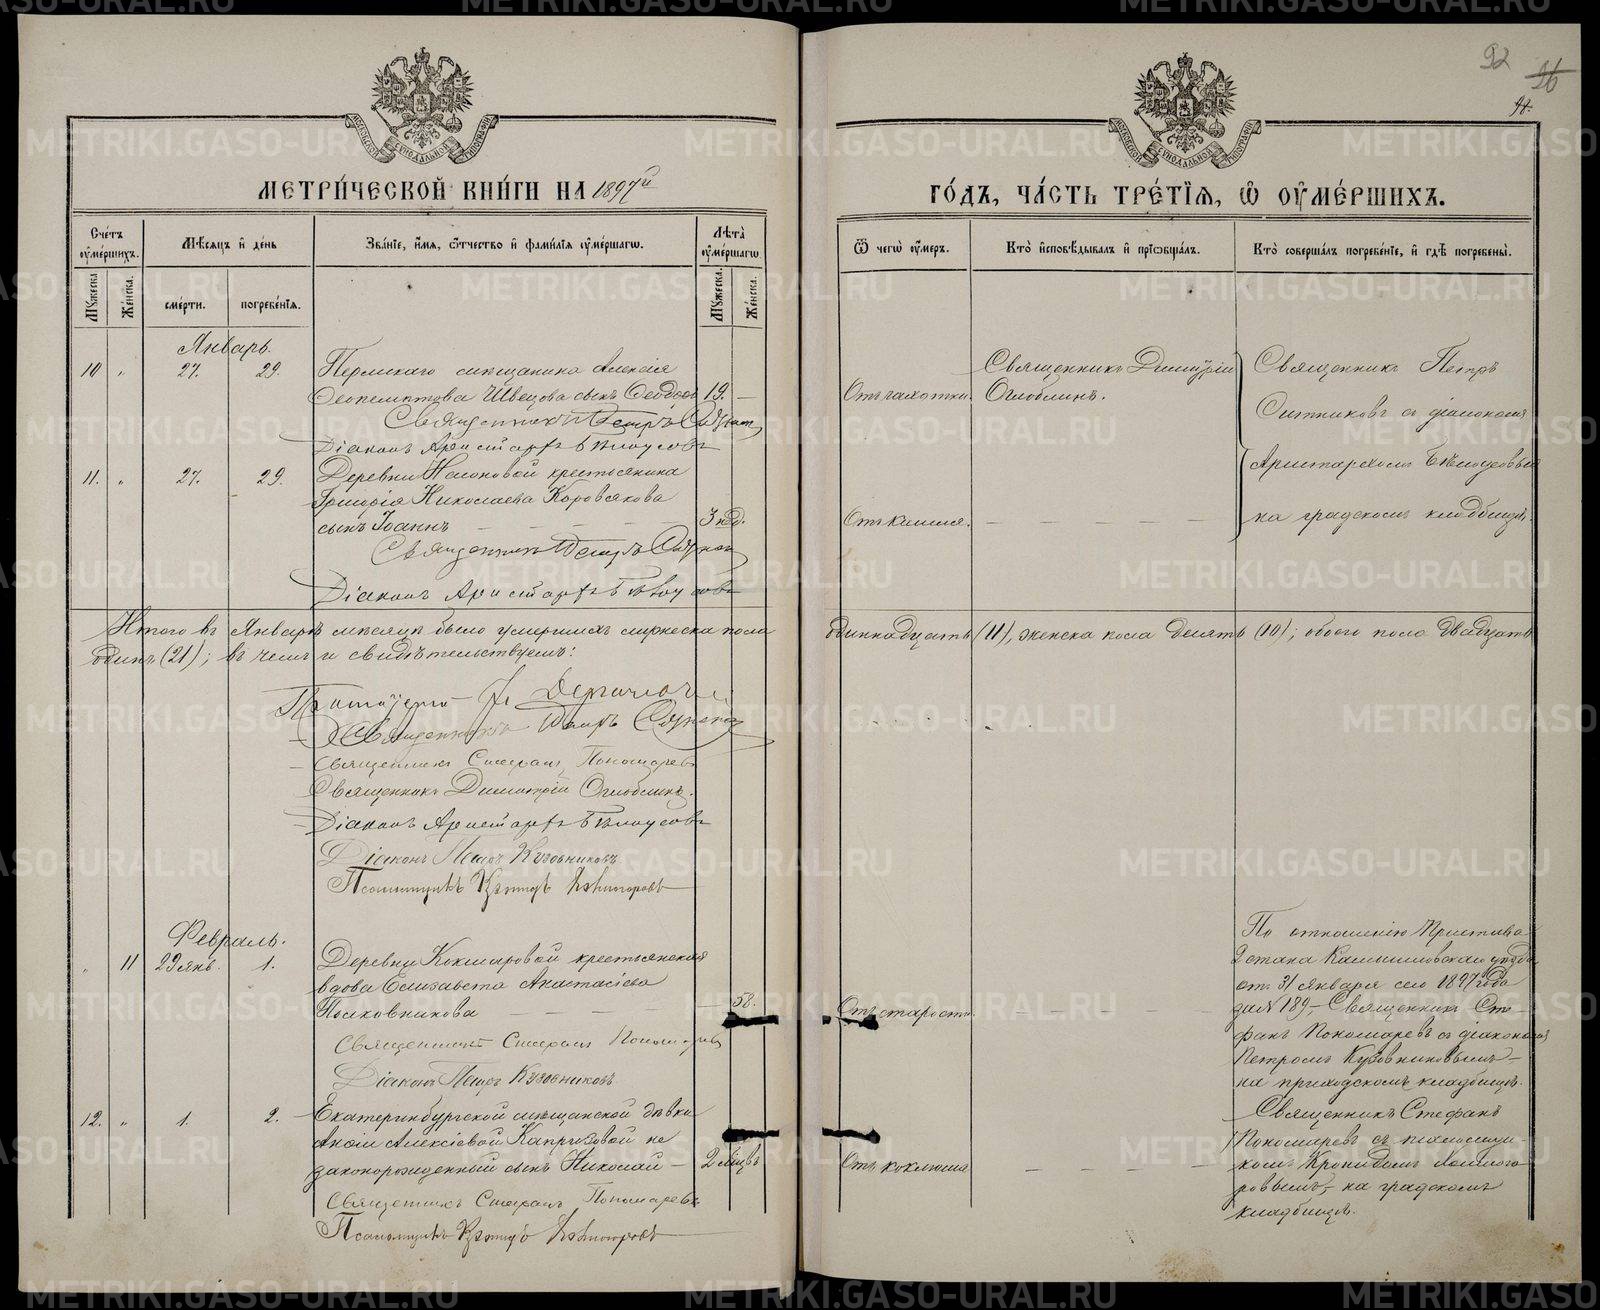 92
26
91.
МОСКОВСКОЙ СѴНОДАЛЬНОЙ ТИПОГРАФІИ
МОСКОВСКОЙ СѴНОДАЛЬНОЙ ТИПОГРАФІИ
МЕТРИ́ЧЕСКОЙ КНИ́ГИ НА 1897й
ГО́ДЪ, ЧА́СТЬ ТРЕ́ТІѦ, Ѽ ОУ҆МЕ́РШИХЪ.
Сче́тъ оу҆ме́ршихъ.
Мѣ́сяцъ и҆ де́нь
Зва́нїе, и҆́мя, ѻ҆́тчество и҆ фами́лїя оу҆ме́ршагѡ.
Лѣта̀ оу҆ме́ршагѡ
Ѿ чегѡ̀ оу҆́меръ.
Кто̀ и҆сповѣ́дывалъ и҆ прїѡбща́лъ.
Кто̀ соверша́лъ погребе́нїе, и҆ гдѣ̀ погребены̀.
Му́жеска.
Же́нска.
сме́рти.
погребе́нїя.
Му́жеска.
Же́нска.
Январь.
10 „ 27. 29. Пермскаго мѣщанина Алексія
Ѳеопемптова Швецова сынъ Ѳеодосій 19. —
Отъ чахотки.
Священникъ Димитрій
Оглоблинъ.
Священникъ Петръ
Діаконъ Аристархъ Бѣлоусовъ
11. „ 27. 29. Деревни крестьянина
Григорія Николаева Коровякова
сынъ Іоаннъ — — — — 3 нед.
Отъ кашля. — — — —
Священникъ Петръ
Діаконъ Аристархъ Бѣлоусовъ
Священникъ Петръ
Ситниковъ съ діакономъ
Аристархомъ Бѣлоусовымъ
на градскомъ кладбищѣ.
Итого въ Январѣ мѣсяцѣ было умершихъ мужеска пола одиннадцать (11), женска пола десять (10); обоего пола двадцать
одинъ (21); въ чемъ и свидѣтельствуемъ:
Протоіерей
Священникъ Петръ
Священникъ Стефанъ Пономаревъ
Священникъ Димитрій Оглоблинъ.
Діаконъ Аристархъ Бѣлоусовъ
Діаконъ Петръ Кузовниковъ
Псаломщикъ
Февраль.
„ 11 29 янв. 1. Деревни Кокшаровой крестьянская
вдова Елизавета Анастасіева
Полковникова — — — — 58.
Отъ старости. — — — —
Священникъ Стефанъ Пономаревъ
Діаконъ Петръ Кузовниковъ
По отношенію Пристава
2 стана Камышловскаго уѣзда
отъ 31 Января сего 1897 года
за № 189, — Священникъ Сте-
фанъ Пономаревъ съ діакономъ
Петромъ Кузовниковымъ —
на приходскомъ кладбищѣ.
12. „ 1. 2. Екатеринбургской мѣщанской дѣвки
Алексіевой не
законорожденный сынъ Николай — 2 мѣсцъ
Отъ коклюша — — — —
Священникъ Стефанъ Пономаревъ
Псаломщикъ
Священникъ Стефанъ
Пономаревъ съ псаломщи-
комъ
на градскомъ
кладбищѣ.
METRIKI.GASO-URAL.RU